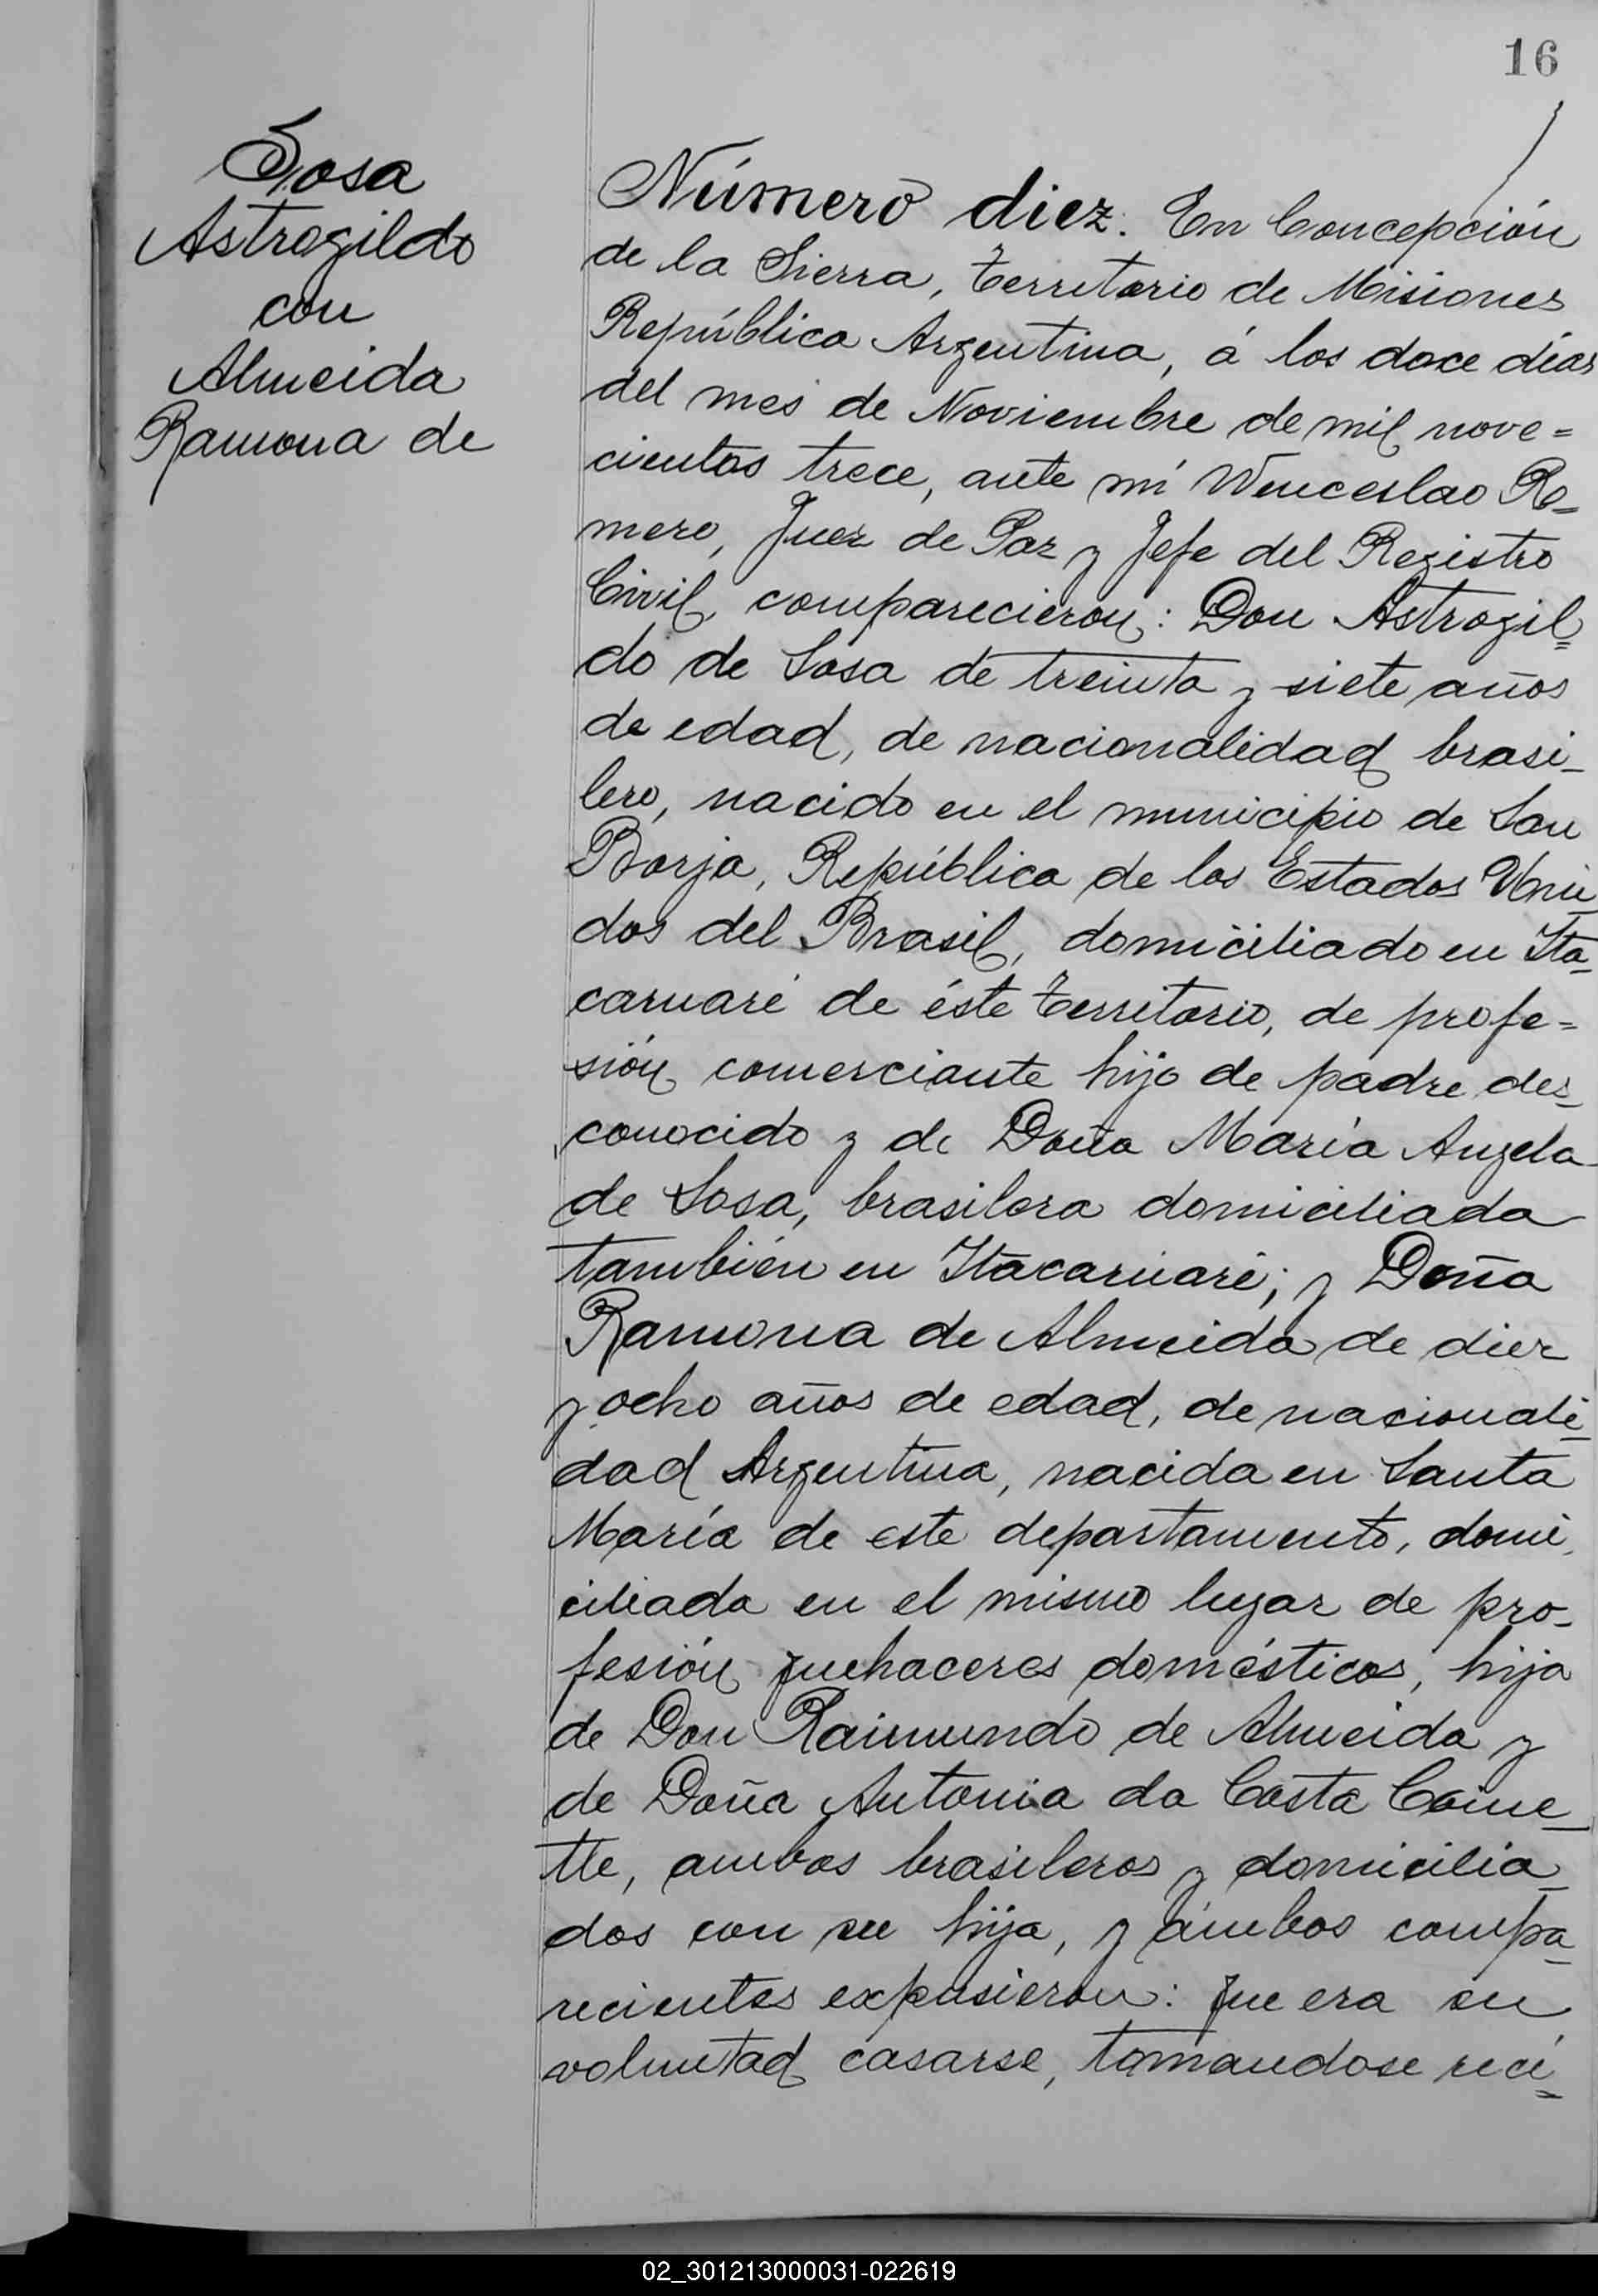 16
Sosa
Astrogildo
con
Almeida
Ramona de
Número diez. En Concepción
de la Sierra, Territorio de Misiones
República Argentina, á los doce días
del mes de Noviembre de mil nove=
cientos trece, ante mí Wenceslao Ro=
mero, Juez de Paz y Jefe del Registro
Civil, comparecieron: Don Astrogil=
do de Sosa de treinta y siete años
de edad, de nacionalidad brasi-
lero, nacido en el municipio de San
Borja, República de los Estados Uni-
dos del Brasil, domiciliado en Ita-
caruaré de éste Territorio, de profe=
sión comerciante hijo de padre des-
conocido y de Doña María Angela
de Sosa, brasilera domiciliada
también en Itacaruaré; y Doña
Ramona de Almeida de diez
y ocho años de edad, de nacionali-
dad Argentina, nacida en Santa
María de este departamento, domi-
ciliada en el mismo lugar de pro-
fesión quehaceres domésticos, hija
de Don Raimundo de Almeida y
de Doña Antonia da Costa
tte, ambos brasileros y domicilia-
dos con su hija, y ámbos compa-
recientes expusieron: que era su
voluntad casarse, tomandose reci=
02_301213000031-022619